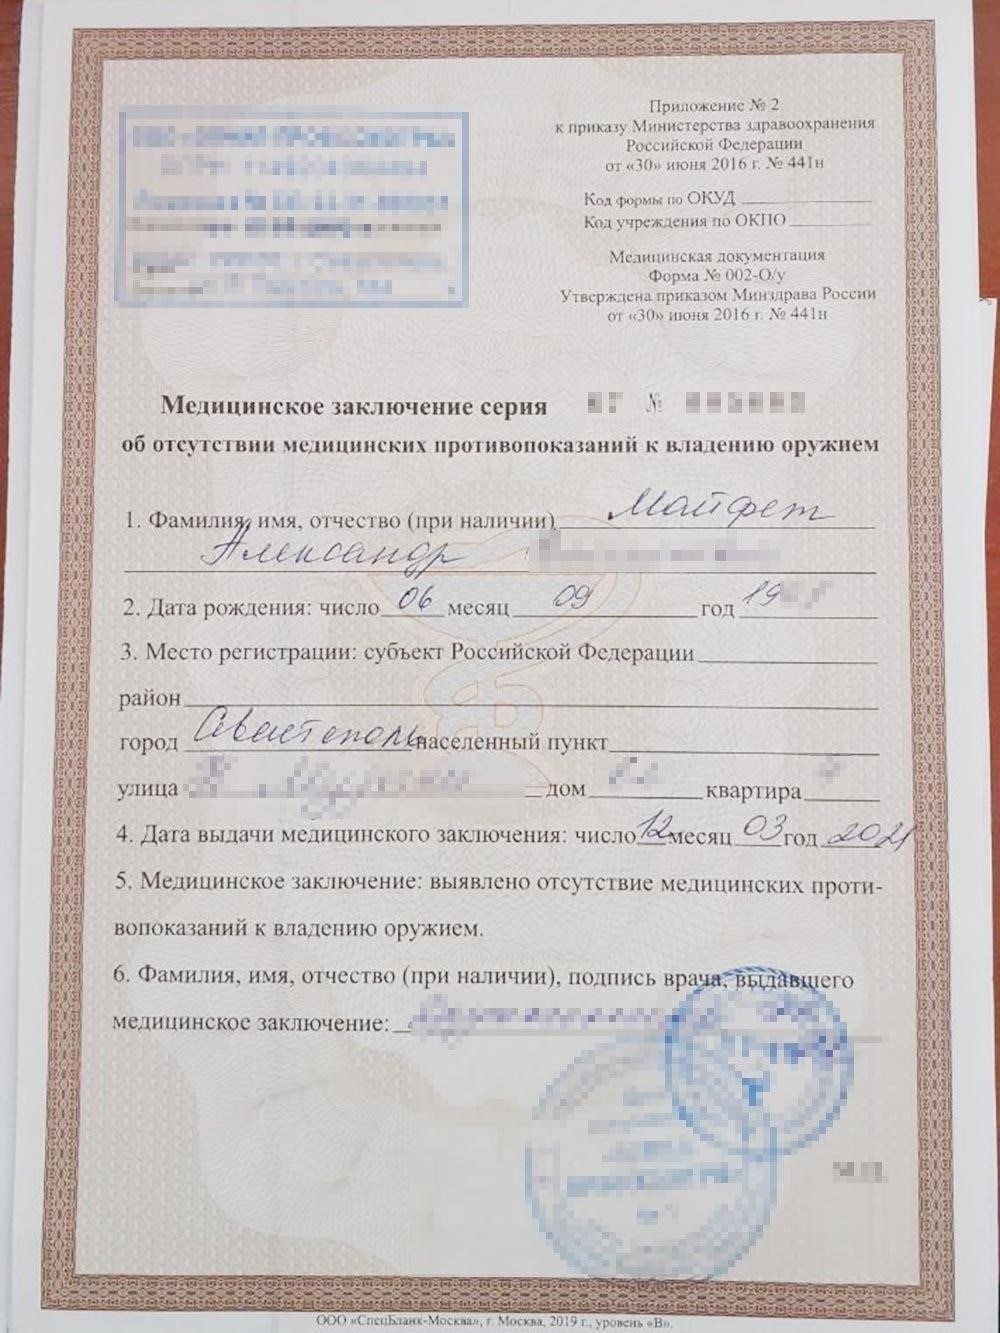 Приложение № 2
к приказу Министерства здравоохранения
Российской Федерации
от «30» июня 2016 г. № 441н
Код формы по ОКУД
Код учреждения по ОКПО
Медицинская документация
Форма № 002-О/у
Утверждена приказом Минздрава России
от «30» июня 2016 г. № 441н
Медицинское заключение серия №
об отсутствии медицинских противопоказаний к владению оружием
1. Фамилия, имя, отчество (при наличии) Майфет
Александр
2. Дата рождения: число 06 месяц 09 год 19
3. Место регистрации: субъект Российской Федерации
район
город Севастополь населенный пункт
улица дом квартира
4. Дата выдачи медицинского заключения: число 12 месяц 03 год 2021
5. Медицинское заключение: выявлено отсутствие медицинских проти-
вопоказаний к владению оружием.
6. Фамилия, имя, отчество (при наличии), подпись врача, выдавшего
медицинское заключение:
ООО «СпецБланк-Москва», г. Москва, 2019 г., уровень «В».